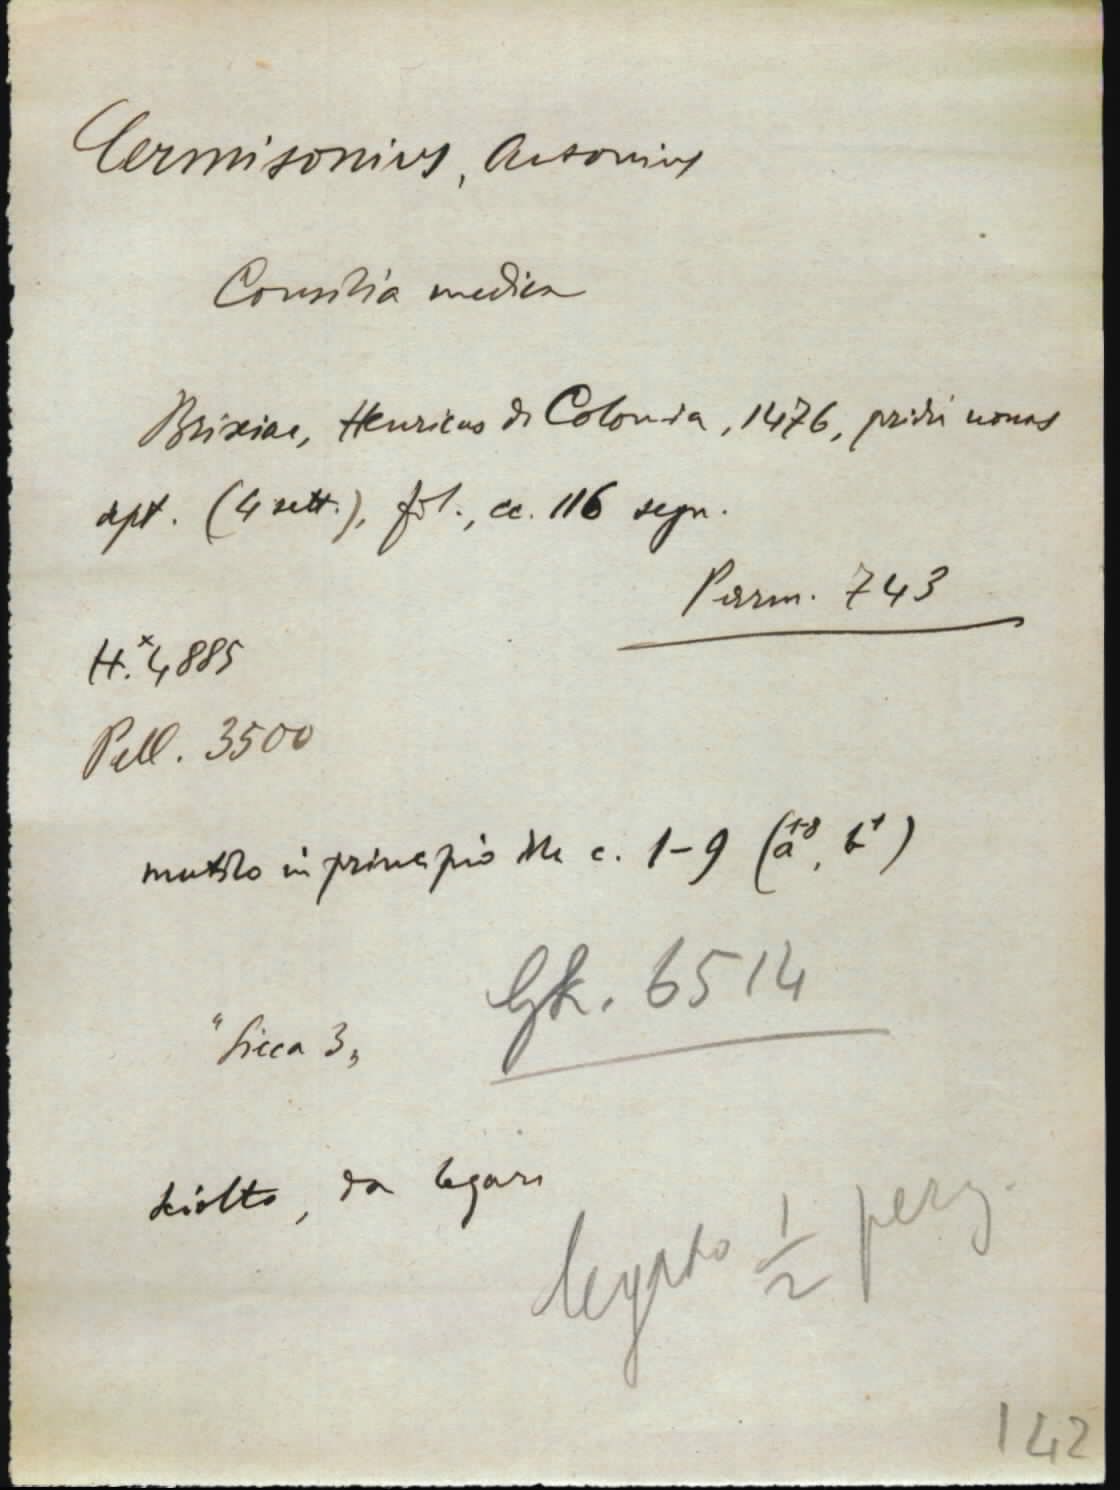 Cermisonius, Antonius
Consilia medica
Brixiae, Henricus de Colonia, 1476, pridie nonas
sept. (4 sett.), fol., cc. 116 segn.
Perrm. 743
H.*4885
Pell. 3500
mutilo in principio delle c. 1-9 (a1-8, b1)
Gk. 6514
"Sicca 3"
sciolto, da legare
legato 1/2 perg.
142